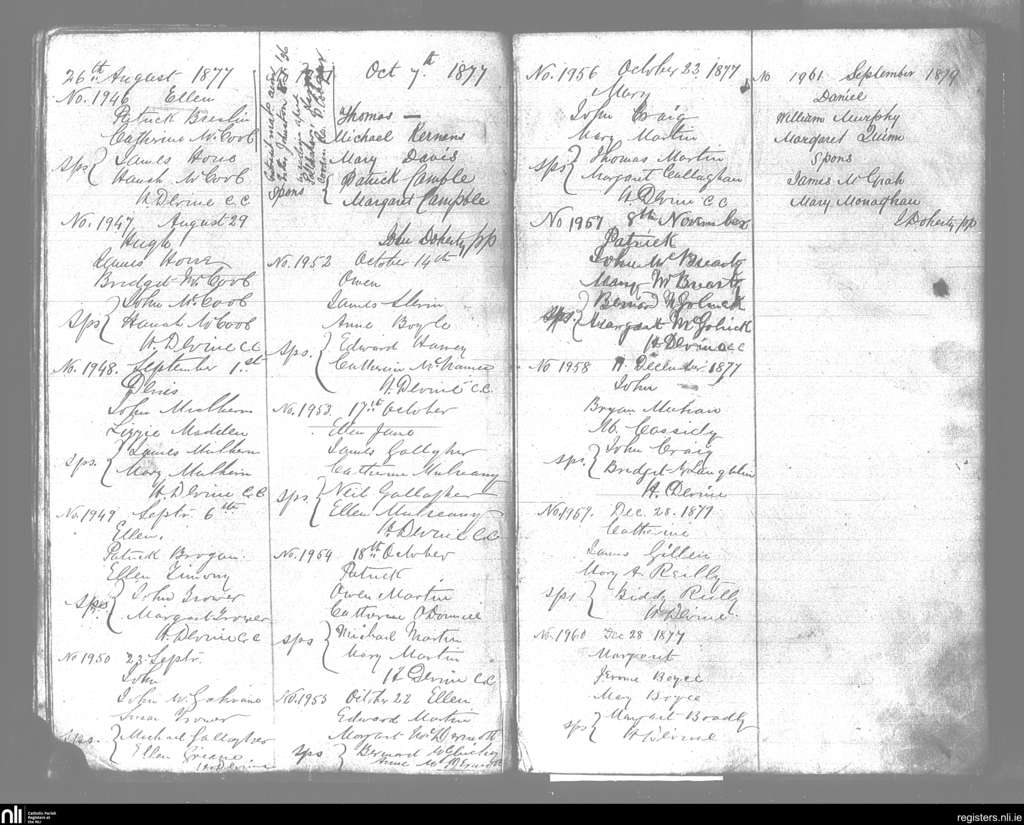 26th August 1877
No. 1946 Ellen
Patrick Breslin
Catherine McCoob
sps James Howe
Hanah McCoob
H. Devine C C
No. 1947 August 29
Hugh
James Howe
Bridget McCoob
sps John McCoob
Hanah McCoob
H. Devine C C
No. 1948. September 1.st
Denis
John Mulhern
Lizzie Madden
sps. James Mulhern
Mary Mulhern
H. Devine C C
No 1949 Septr. 6th
Ellen.
Patrick Brogan.
Ellen Timony
sps John Grower
Margaret Grower
H. Devine C C
No 1950 23 Septr.
John
John McGahrane
Susan Grower
sps. Michael Gallagher
Ellen
H. Devine
Oct 7th. 1877
Thomas —
Michael Kernens
Mary Davis
Spons Patrick Campble
Margaret Campble
John Doherty pp
No. 1952 October 14th
Owen
James Slevin
Anne Boyle
sps. Edward Harvey
Catherine McNamee
H. Devine C.C.
No. 1953. 17th October
Ellen Jane
James Gallagher
Catherine Mulreany
sps Neil Gallagher
Ellen Mulreany
H. Devine C C
No. 1954 18th October
Patrick
Owen Martin
Catherine O'Donnell
sps Michael Martin
Mary Martin
H. Devine C.C.
No. 1955 October 22 Ellen
Edward Martin
Margaret McDermott
sps Bernard
Anne McDermott
No. 1956 October 23, 1877
Mary
John Craig
Mary Martin
sps Thomas Martin
Margaret Callaghan
H. Devine C C
No 1957 8th November
Patrick
John McBrearty
Mary McBrearty
sps. Bernard McGolrick
Margaret McGolrick
H. Devine C C
No 1958 11 December 1877
John
Bryan Meehan
Cassidy
sps. John Craig
Bridget McLaughlin
H. Devine
No. 1959. Dec. 28. 1877
Catherine
James Gillen
Mary A Reilly
sps Biddy Reilly
H. Devine
No. 1960 Dec 28 1877
Margaret
Jerome Boyce
Mary Boyce
sps Margaret Bradly
H. Devine
No 1961 September 1879
Daniel
William Murphy
Margaret Quinn
Spons
James McGrah
Mary Monaghan
J Doherty pp
nli
Catholic Parish
Registers at
the NLI
registers.nli.ie